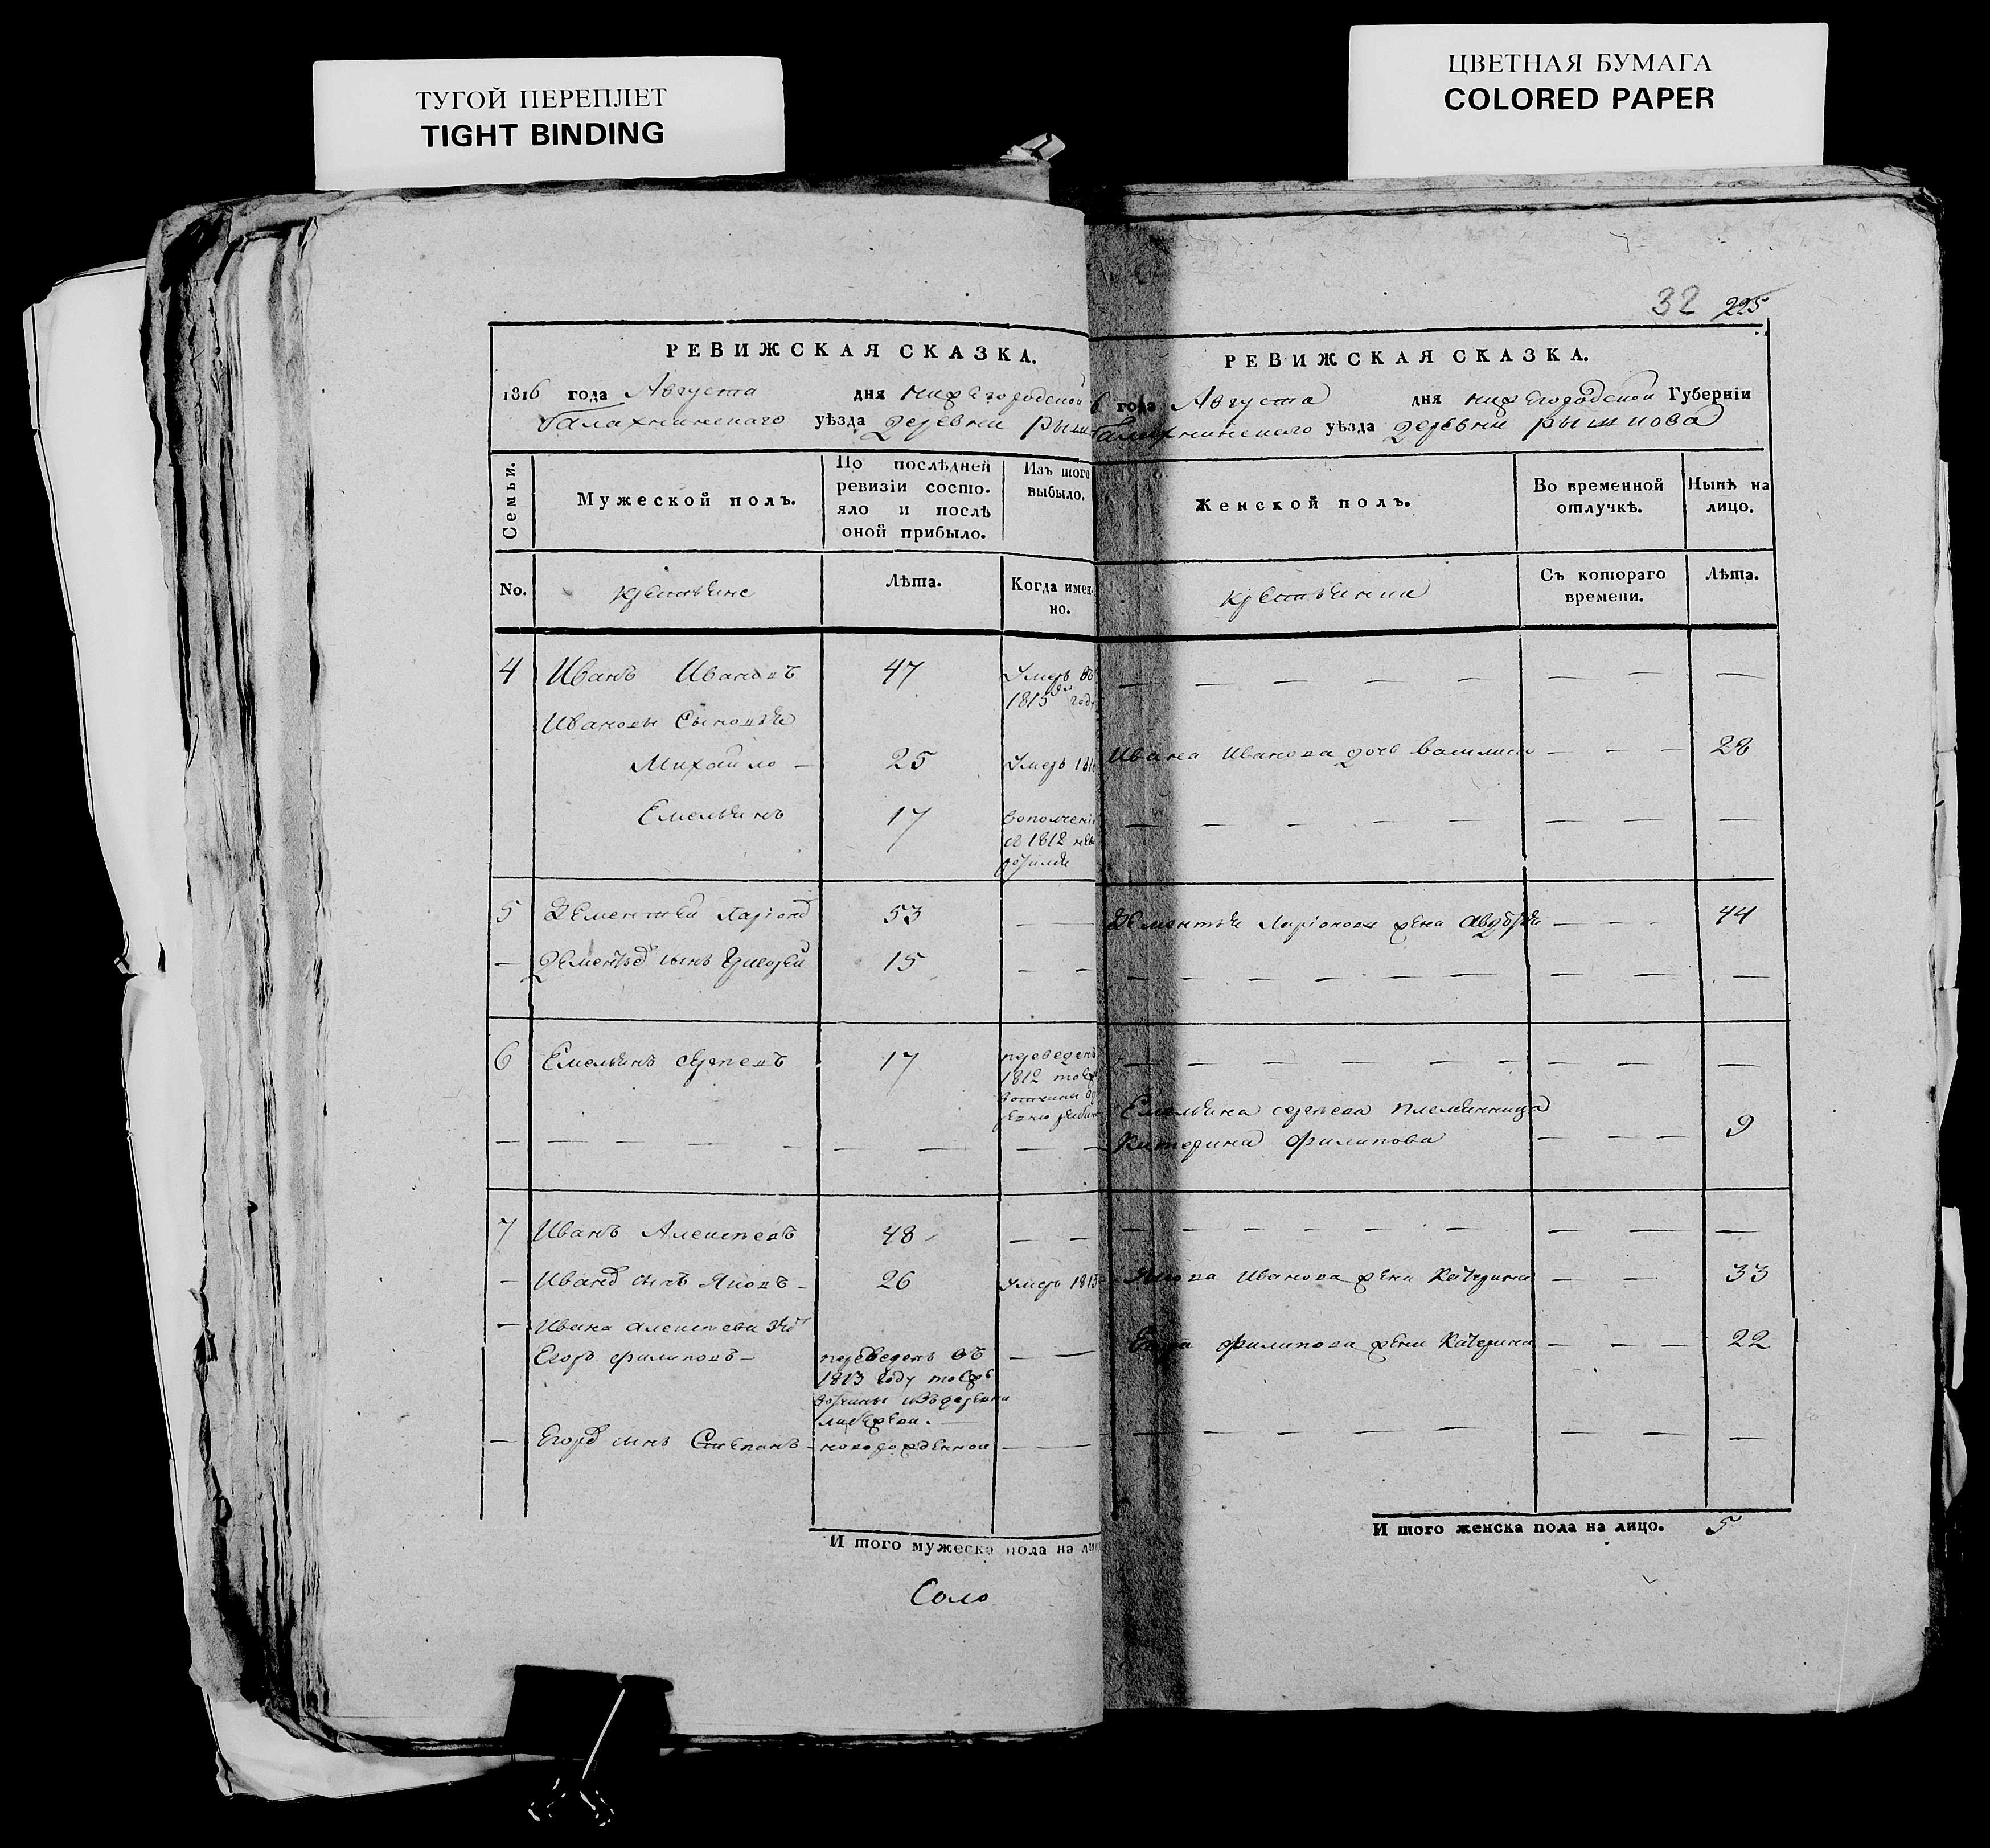 ТУГОЙ ПЕРЕПЛЕТ
TIGHT BINDING
ЦВЕТНАЯ БУМАГА
COLORED PAPER
РЕВИЖСКАЯ СКАЗКА.
1816 года Августа дня нижегородской
Балахнинскаго уѣзда деревни Рыш
Семьи.
Мужеской полъ.
По послѣдней
ревизіи состо-
яло и послѣ
оной прибыло.
Изъ того
выбыло.
No.
крестьяне
Лѣта.
Когда имен-
но.
4 Иванъ Ивановъ 47 Умеръ въ
1815 году
Ивановы Сыновья
Михайло 25 Умеръ
Емельянъ 17
1812
5 Дементей Ларіонов 53
Дементьев сынъ Григорей 15
6 Емельянъ Сергеевъ 17 переведенъ
1812
7 Иванъ Алексеевъ 48
Иванов сынъ Яковъ 26 Умеръ 1813
Ивана Алексеева зять
Егоръ Филиповъ переведенъ въ
1813 году тоежъ
вотчины изъ деревни
Егоров сынъ Степанъ новорожденной
И того мужеска пола на
Соло
32 225
РЕВИЖСКАЯ СКАЗКА.
6 года Августа дня нижегородской Губерніи
Балахнинскаго уѣзда деревни рышкова
Женской полъ.
Во временной
отлучкѣ.
Нынѣ на
лицо.
крестьянки
Съ котораго
времени.
Лѣта.
Ивана Иванова дочь Василиса 28
Дементья Ларіонова жена Авдотья 44
Емельяна сергеева племянница
Катерина Филипова 9
Якова Иванова жена Катерина 33
Егора Филипова жена Катерина 22
И того женска пола на лицо. 5